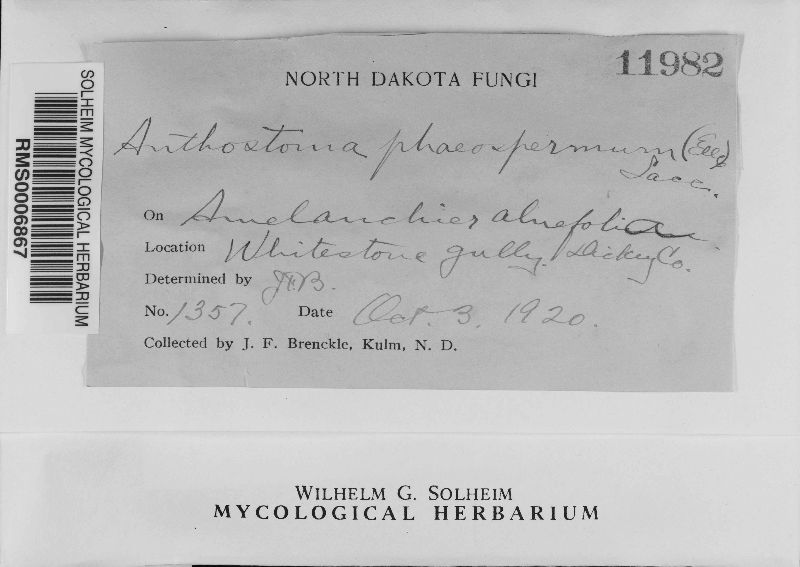 11982
NORTH DAKOTA FUNGI
Anthostoma phaeospermum (Ell)
Sacc.
On Amelanchier alnefolia
Location Whitestone gully. Dickey Co.
Determined by JFB.
No. 1357. Date Oct. 3, 1920.
Collected by J. F. Brenckle, Kulm, N. D.
SOLHEIM MYCOLOGICAL HERBARIUM
RMS0006867
WILHELM G. SOLHEIM
MYCOLOGICAL HERBARIUM